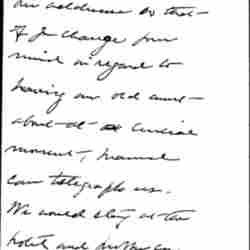 our address so that
if you change your
mind in regard to
having our old
about at a crucial
moment, 
can telegraph us.
We would stay at the
hotel and